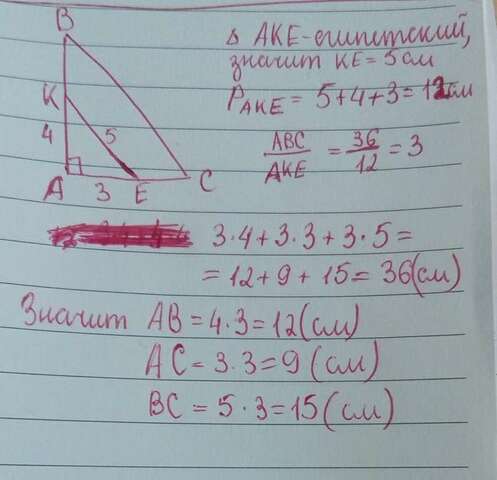 B
K
4
5
A
3
E
C
Δ AKE-египетский,
значит KE = 5 см
P_AKE = 5+4+3 = 12 см
ABC/AKE = 36/12 = 3
3·4+3·3+3·5=
=12+9+15=36(см)
Значит AB=4·3=12(см)
AC=3·3=9(см)
BC=5·3=15(см)